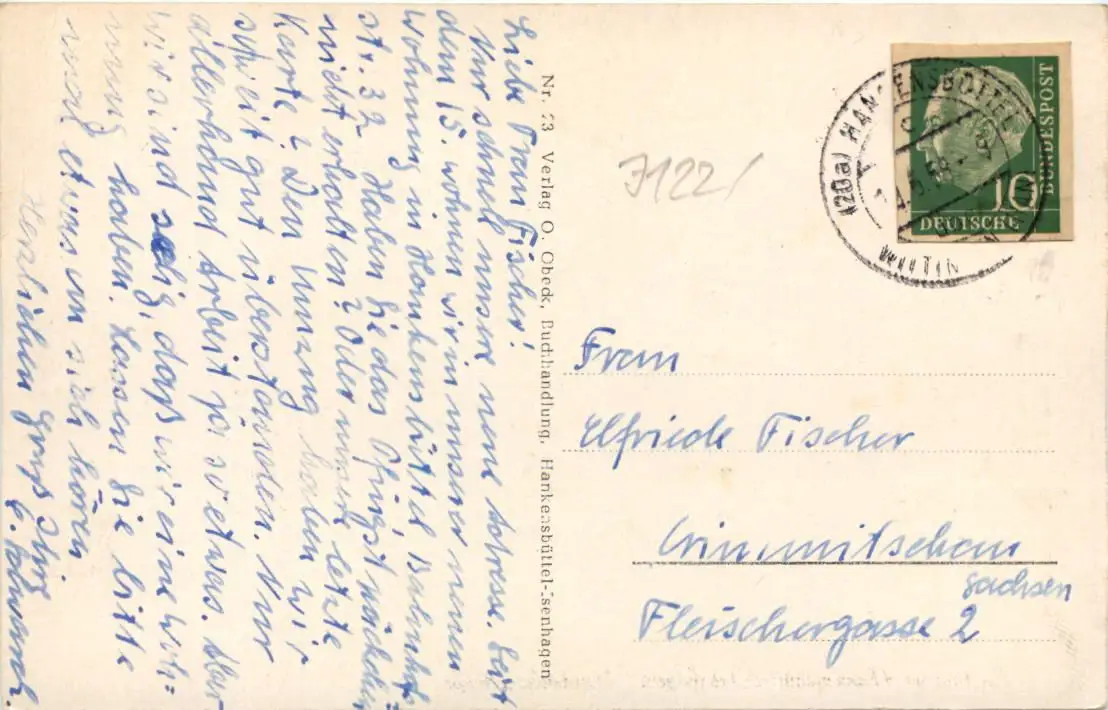 Liebe Frau Fischer!
Nur schnell unsere neue Adresse. Seit
den 15. wohnen wir in unserer neuen
Wohnung in Hankensbüttel Bahnhof
str. 32 Haben Sie das Pfingstpäckchen
nicht erhalten? Oder unsere letzte
Karte? Den Umzug haben wir
soweit gut überstanden. Nur
allerhand Arbeit so etwas. Aber
wir sind selig, daß wir eine Woh=
nung haben. Lassen Sie bitte
mal etwas von sich hören
Herzlichen Gruß Ihre
E.
Nr. 23 Verlag O. Obeck, Buchhandlung, Hankensbüttel-Isenhagen
7122/
(20a) HANKENSBÜTTEL
WITTIN
10
DEUTSCHE
BUNDESPOST
Frau
Elfriede Fischer
Crimmitschau
Sachsen
Fleischergasse 2